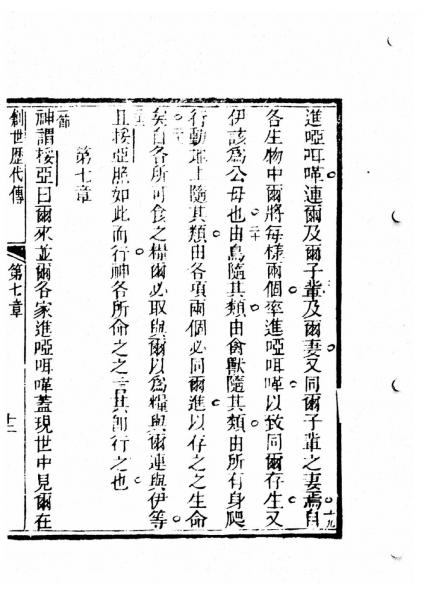 進啞咡𠼻連爾及爾子輩及爾妻又同爾子輩之妻焉十九自
各生物中爾將每樣兩個率進啞咡𠼻以致同爾存生又
伊該為公母也二十由鳥隨其類由禽獸隨其類由所有身爬
行動地上隨其類由各項兩個必同爾進以存之之生命
矣自各所可食之糧爾必取與爾以為糧與爾連與伊等
且挼亞照如此而行神各所命之之言其卽行之也
第七章
一節神謂挼亞曰爾來並爾各家進啞咡𠼻蓋現世中見爾在
創世歷代傳 第七章 十二